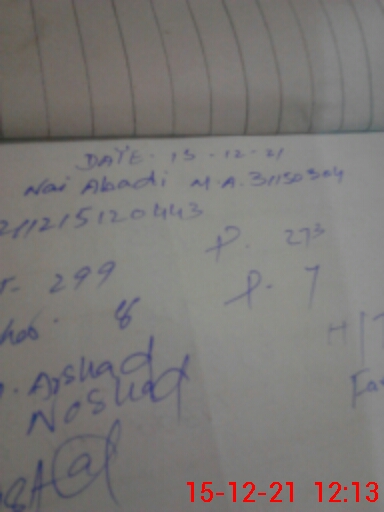 DATE. 15-12-21
Nai Abadi M.A. 31150304
211215120443
P. 273
299
P. 7
8
H/T
Arshad
Noshad
15-12-21 12:13